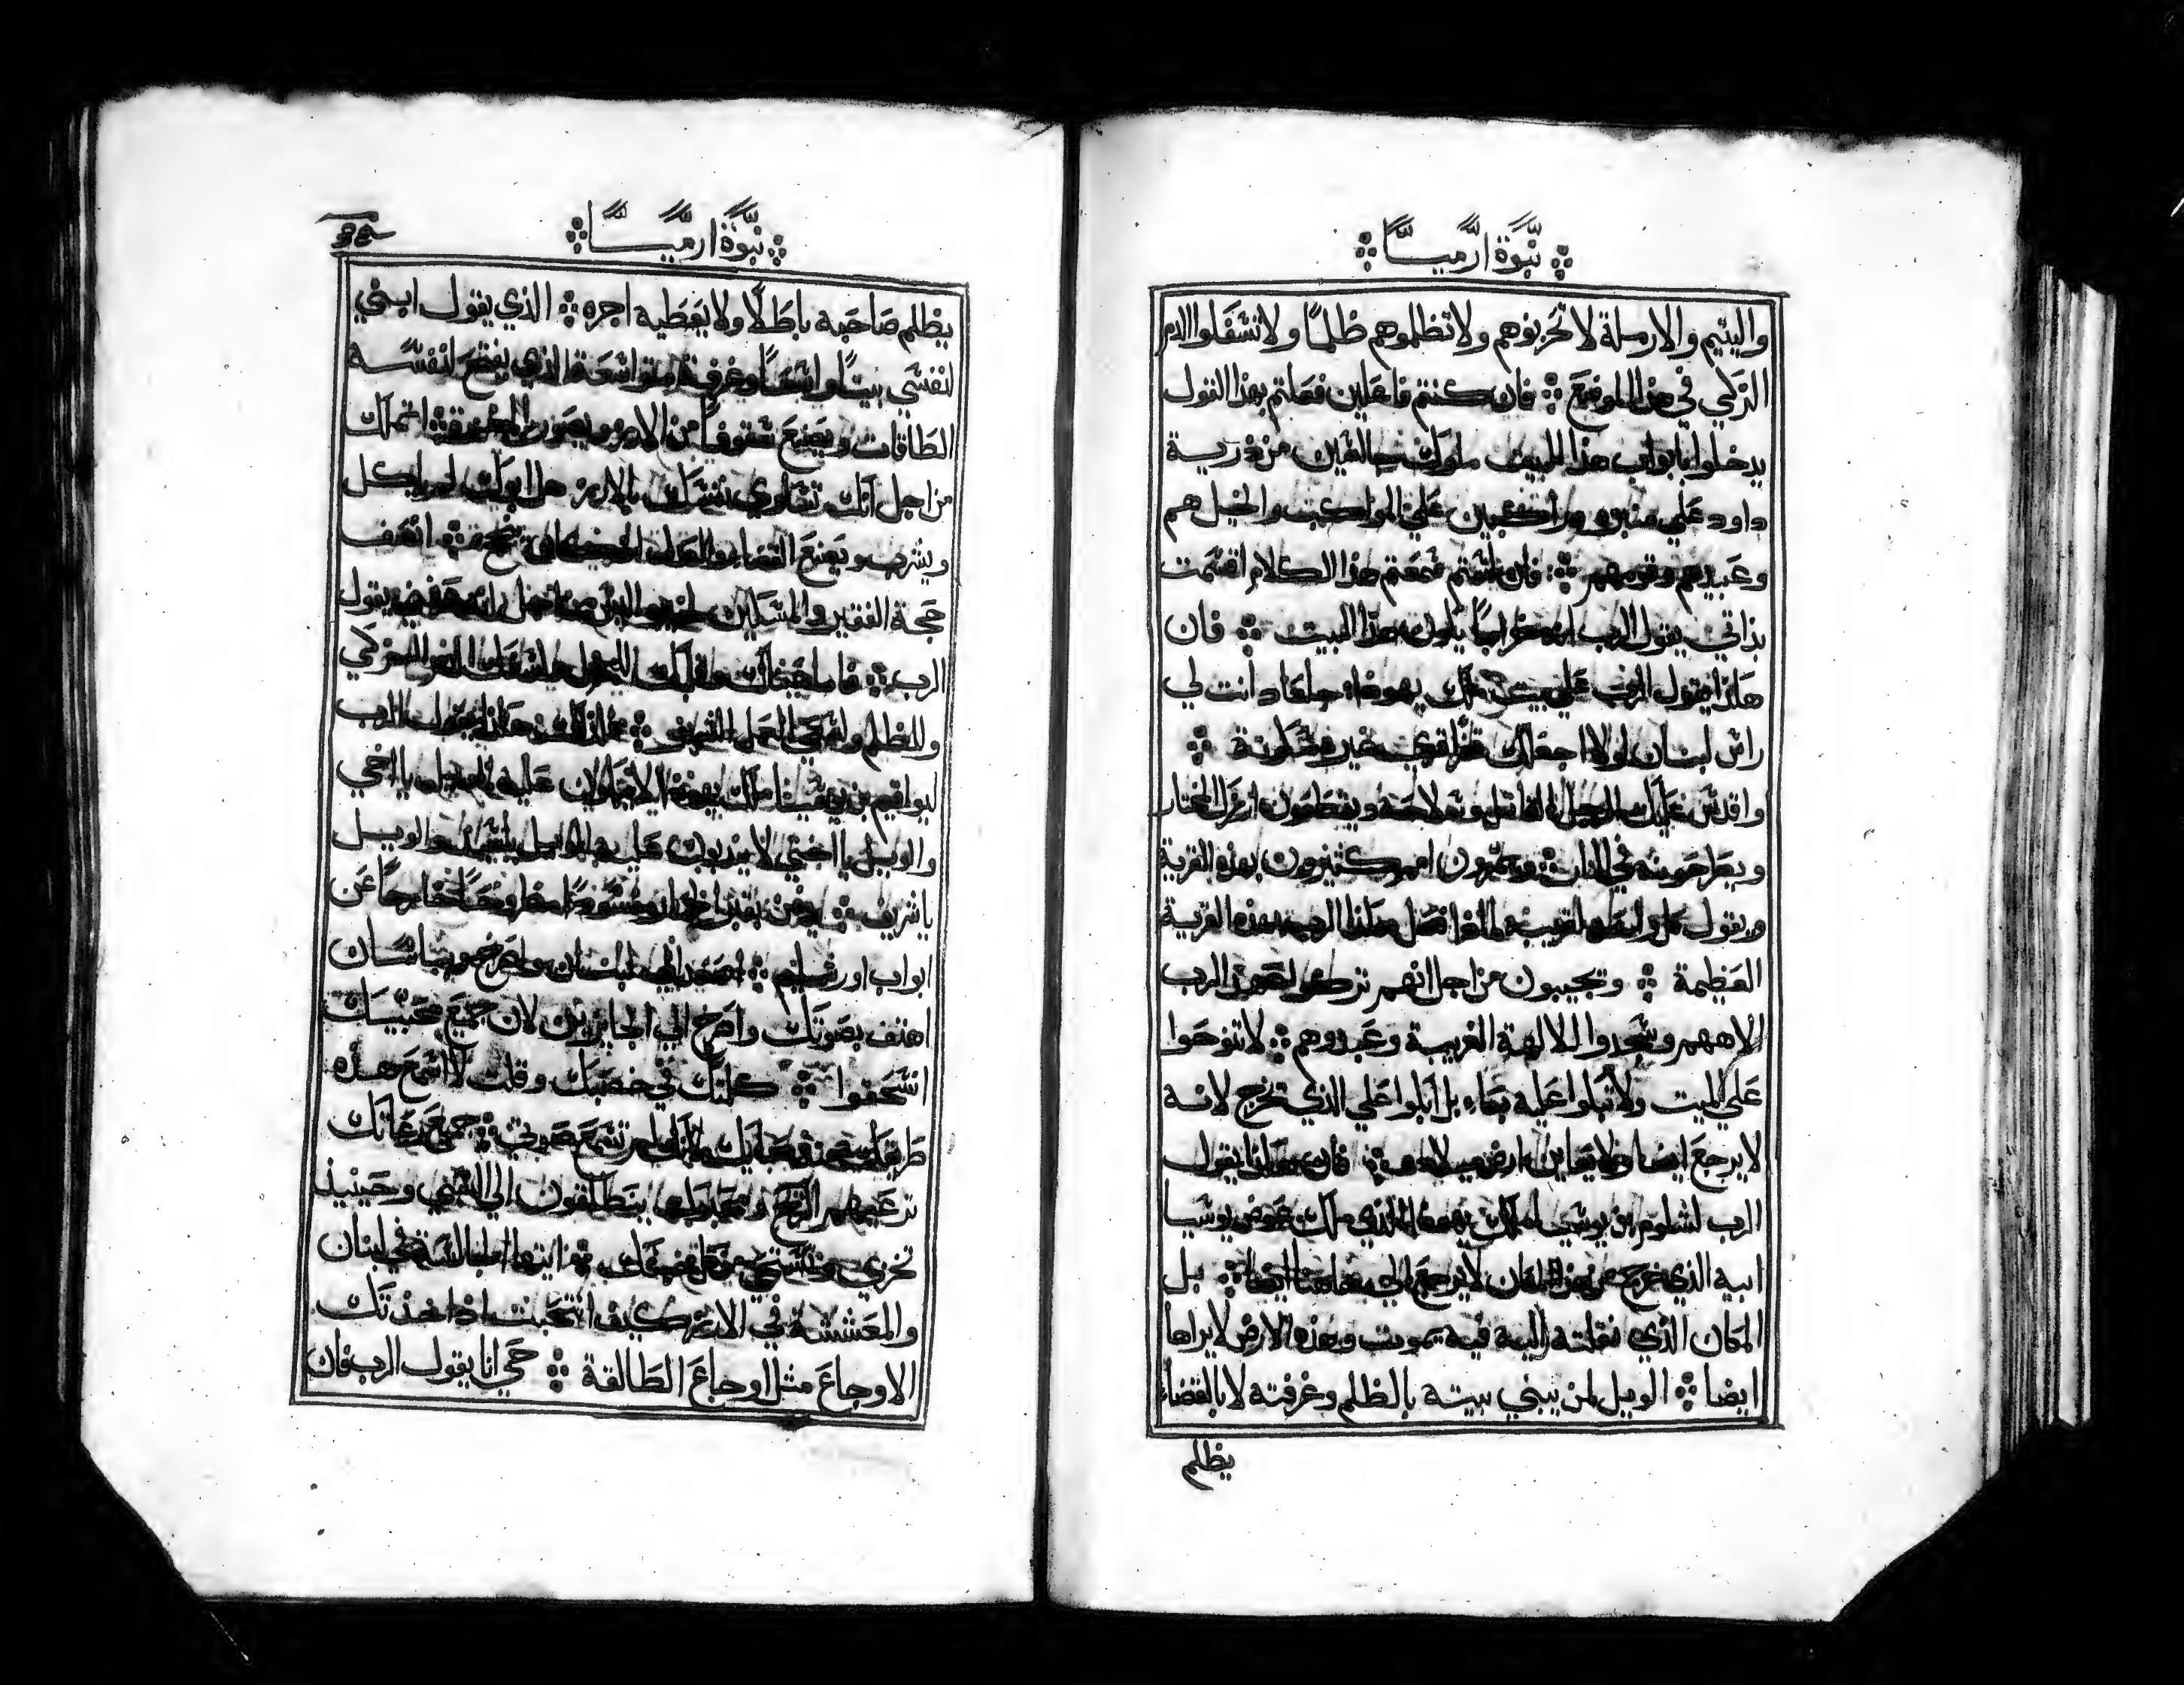 نبوة ارميا
واليتيم والارملة لا تحزنوهم ولا تظلموهم ظلمًا ولا تسفكوا الدم
الزكي في هذا الموضع ⁘ فان كنتم فاعلين فعلتم بهذا القول
يدخلوا بابواب هذا البيت ملوك جالسين من ذرية
داود علي منبره وراكبين علي المراكب والخيل هم
وعبيدهم وقومهم ⁘ فان انتم سمعتم هذا الكلام اقسمت
بذاتي يقول الرب ان خرابا يكون هذا البيت ⁘ فان
هكذا يقول الرب علي بيت ملك يهوذا جلعاد انت لي
راس لبنان لولا اجعلك قفرا قري غير مسكونة ⁘
واقدس عليك الرجل القاتل وسلاحه ويقطعون ارزك المختار
ويطرحونه في النار ⁘ ويجوزون امم كثيرون بهذه القرية
ويقول كل واحد لقريبه لماذا فعل هكذا الرب بهذه القرية
العظيمة ⁘ وتجيبون من اجل انهم تركوا عهد الرب
الاههم وسجدوا للالهة الغريبة وعبدوهم ⁘ لا تنوحوا
علي الميت ولا تبكوا عليه بكاء بل ابكوا علي الذي تخرج لانه
لا يرجع ايضا ولا يعاين ارض ميلاده ⁘ فان هكذا يقول
الرب لشلوم بن يوشيا ملك يهوذا الذي ملك عوض يوشيا
ابيه الذي خرج من هذا المكان لا يرجع الي هاهنا ايضا ⁘ بل
المكان الذي نقلته اليه فيه يموت وبهذه الارض لا يراها
ايضا ⁘ الويل لمن يبني بيته بالظلم وغرفته لا بالقضاء
يظلم
نبوة ارميا
يظلم صاحبه باطلًا ولا يعطيه اجره ⁘ الذي يقول ابني
لنفسي بيتًا واسعًا وغرفة متواسعة الذي يفتح لنفسه
الطاقات ويصنع سقوفًا من الارز ويصور ⁘ اتملك
من اجل انك تساوي نفسك بالارز هل ابوك لم ياكل
ويشرب ويصنع القضاء والعدل ⁘ انصف
حجة الفقير والمسكين يقول
الرب ⁘ فاما عيناك وقلبك الدم الزكي
وللظلم العمل ⁘ لذلك هكذا يقول الرب
ليواقيم بن يوشيا ملك يهوذا لا يبكون عليه يا اخي
والويل يا اختي لا يندبون عليه الويل يا سيد والويل
يا شريف ⁘ يدفن بقبر مطروحًا خارجًا عن
ابواب اورشليم ⁘ اصعد الي لبنان واصرخ وبباسان
اهتف بصوتك واصرخ الي الجايزين لان جميع محبيك
انسحقوا ⁘ كلمتك في خصبك وقلت لا اسمع هذه
طريقك من صباك لانك لم تسمع صوتي ⁘ جميع رعاتك
ترعيهم الريح ومحبوك ينطلقون الي السبي وحينيذ
تخزي وتستحي من كل ⁘ ايتها الجالسة في لبنان
والمعششة في الارز كيف انتحبت اذ اخذتك
الاوجاع مثل اوجاع الطالقة ⁘ حي انا يقول الرب فان